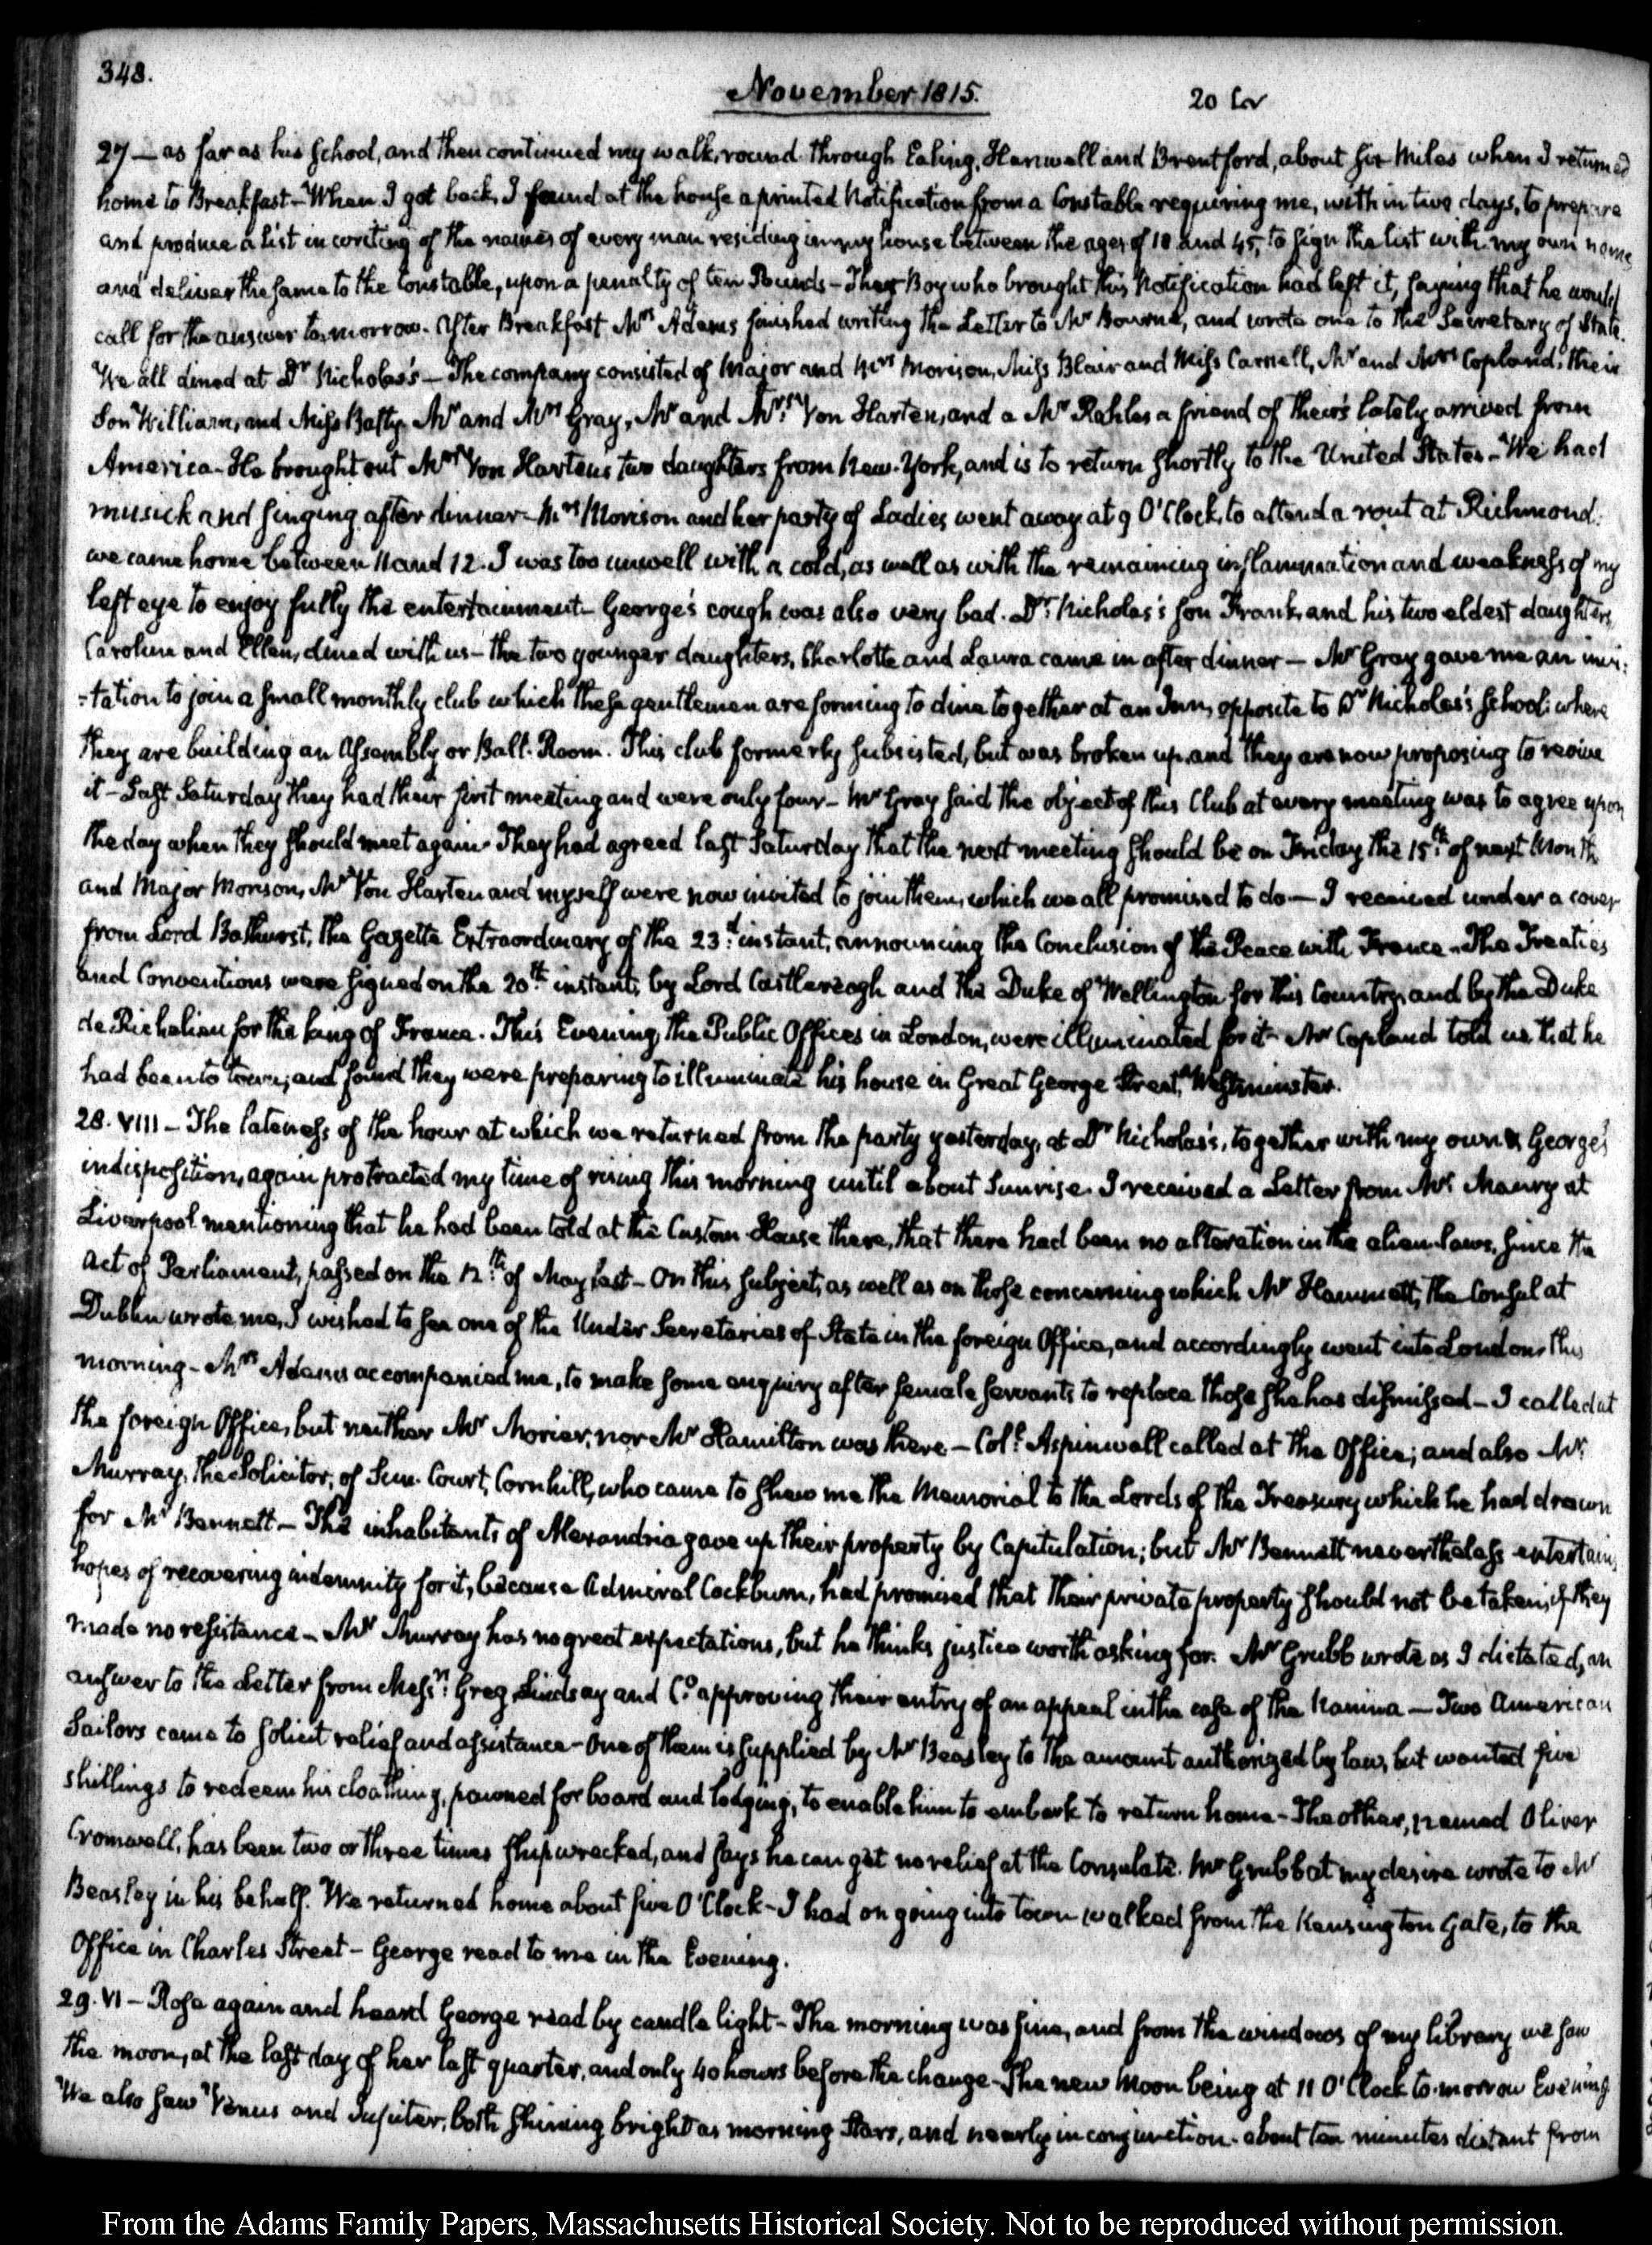 348.
November 1815.
27 — as far as his School, and then continued my walk, round through Ealing, Hanwell and Brentford, about six Miles when I returned
home to Breakfast — When I got back, I found at the house a printed Notification from a Constable requiring me, within two days, to prepare
and produce a list in writing of the names of every man residing in my house between the ages of 18 and 45, to sign the list with my own name
and deliver the same to the Constable, upon a penalty of ten Pounds — The Boy who brought this Notification had left it, saying that he would
call for the answer to-morrow. After Breakfast Mrs Adams finished writing the Letter to Mr Bourne, and wrote one to the Secretary of State.
We all dined at Dr Nicholas's — The company consisted of Major and Mrs Morison, Miss Blair and Miss Carnell, Mr and Mrs Copland, their
Son William, and Miss Batty. Mr and Mrs Gray, Mr and Mrs Von Harten, and a Mr Rahles a friend of theirs lately arrived from
America — He brought out Mrs Von Harten's two daughters from New-York, and is to return shortly to the United States — We had
musick and singing after dinner — Mrs Morison and her party of Ladies went away at 9 O'Clock, to attend a rout at Richmond.
we came home between 11 and 12. I was too unwell with a cold, as well as with the remaining inflammation and weakness of my
left eye to enjoy fully the entertainment — George's cough was also very bad. Dr Nicholas's Son Frank, and his two eldest daughters
Caroline and Ellen, dined with us — the two younger daughters, Charlotte and Laura came in after dinner — Mr Gray gave me an invi-
-tation to join a small monthly club which these gentlemen are forming to dine together at an Inn, opposite to Dr Nicholas's School: where
they are building an Assembly or Ball-Room. This club formerly subsisted, but was broken up, and they are now proposing to revive
it — Last Saturday they had their first meeting and were only four — Mr Gray said the object of this Club at every meeting was to agree upon
the day when they should meet again. They had agreed last Saturday that the next meeting should be on Friday the 15th of next Month
and Major Morison, Mr Von Harten and myself were now invited to join them, which we all promised to do — I received under a cover
from Lord Bathurst, the Gazette Extraordinary of the 23d instant, announcing the Conclusion of the Peace with France — The Treaties
and Conventions were signed on the 20th instant, by Lord Castlereagh and the Duke of Wellington for this Country, and by the Duke
de Richelieu for the king of France. This Evening, the Public Offices in London, were illuminated for it — Mr Copland told us that he
had been to town, and found they were preparing to illuminate his house in Great George Street, Westminster.
28. VIII — The lateness of the hour at which we returned from the party yesterday, at Dr Nicholas's, together with my own & George's
indisposition, again protracted my time of rising this morning until about Sunrise. I received a Letter from Mr Maury at
Liverpool mentioning that he had been told at the Custom-House there, that there had been no alteration in the alien laws, since the
Act of Parliament, passed on the 12th of May last — On this subject, as well as on those concerning which Mr Hammett, the Consul at
Dublin wrote me, I wished to see one of the Under Secretaries of State in the foreign Office, and accordingly went into London this
morning — Mrs Adams accompanied me, to make some enquiry after female servants to replace those she has dismissed — I called at
the foreign Office, but neither Mr Morier, nor Mr Hamilton was there — Coll. Aspinwall called at the Office; and also Mr
Murray, the Solicitor, of Sun-Court, Cornhill, who came to shew me the Memorial to the Lords of the Treasury which he had drawn
for Mr Bennett — The inhabitants of Alexandria gave up their property by Capitulation; but Mr Bennett nevertheless entertains
hopes of recovering indemnity for it, because Admiral Cockburn, had promised that their private property should not be taken, if they
made no resistance — Mr Murray has no great expectations, but he thinks justice worth asking for. Mr Grubb wrote as I dictated, an
answer to the Letter from Messrs. Greg Lindsay and Co. approving their entry of an appeal in the case of the Nanina — Two American
Sailors came to solicit relief and assistance — One of them is supplied by Mr Beasley to the amount authorized by law, but wanted five
shillings to redeem his cloathing, pawned for board and lodging, to enable him to embark to return home — The other, named Oliver
Cromwell, has been two or three times shipwrecked, and says he can get no relief at the Consulate. Mr Grubb at my desire wrote to Mr
Beasley in his behalf. We returned home about five O'Clock — I had on going into town walked from the Kensington Gate, to the
Office in Charles Street — George read to me in the Evening.
29. VI — Rose again and heard George read by candle light — The morning was fine, and from the windows of my library we saw
the moon, at the last day of her last quarter, and only 40 hours before the change — The new Moon being at 11 O'Clock to-morrow Evening
We also saw Venus and Jupiter, both shining bright as morning Stars, and nearly in conjunction — about ten minutes distant from
From the Adams Family Papers, Massachusetts Historical Society. Not to be reproduced without permission.